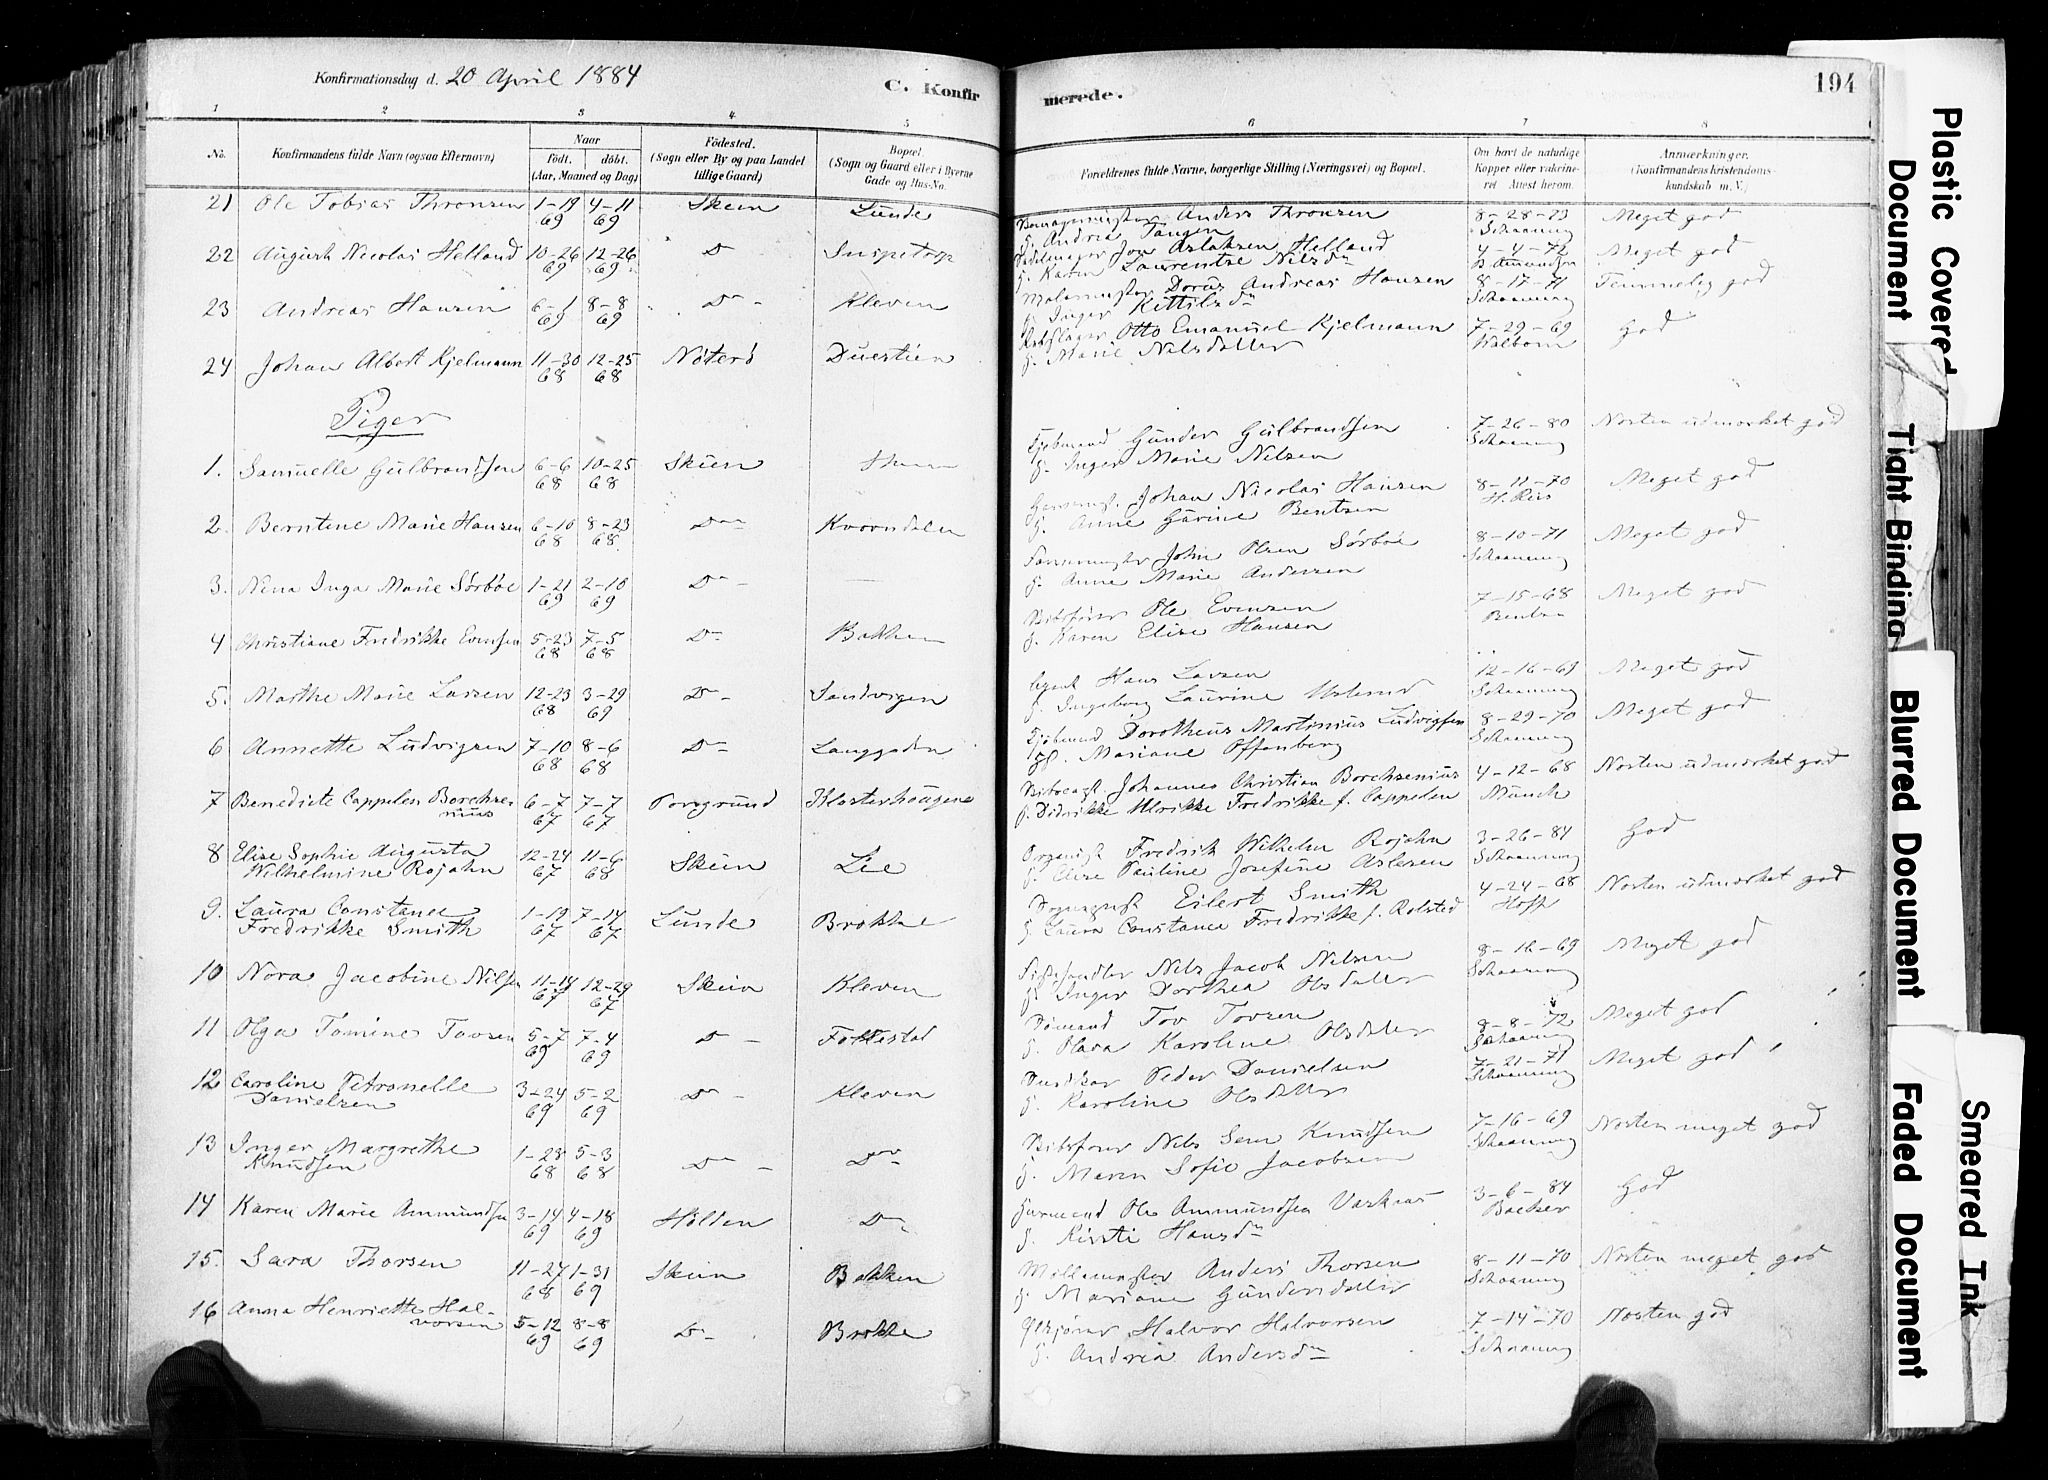 Konfirmationsdag d. 20 April 1884
C. Konfir
merede.
194
1 2 3 4 5 6 7 8
No.
Konfirmandens fulde Navn (ogsaa Efternavn)
Naar
födt. döbt.
(Aar, Maaned og Dag)
Födested.
(Sogn eller By og paa Landet
tillige Gaard)
Bopæl.
(Sogn og Gaard eller i Byerne
Gade og Hus-No.
Forældrenes fulde Navne, borgerlige Stilling (Næringsvei) og Bopæl.
Om havt de naturlige
Kopper eller vakcine-
ret Attest herom.
Anmærkninger.
(Konfirmandens kristendoms-
kundskab m. V.)
21 Ole Tobias Thronsen 1-19 69 4-11 69 Skien Lunde
Anders Thronsen
g. Andrea Tangen
8-28-73 Schaanning Meget god
22 August Nicolai Helland 10-26 69 12-26 69 D Snipetorp
Jon Aslaksen Helland
g. Karen Laurentze Nilsdn
4-4-72 Meget god
23 Andreas Hansen 6-1 69 8-8 69 Do - Kleven
Malermester Andreas Hansen
g. Inger Kittilsdn
8-17-71 Schaanning Temmelig god
24 Johan Albert Kjelmann 11-30 68 12-25 68 Nøterö Duestien
Otto Emanuel Kjelmann
g. Marie Nilsdatter
7-29-69 Walborn God
Piger
1. Samuelle Gulbrandsen 6-6 68 10-25 68 Skien
Gunder Gulbrandsen
g. Inger Marie Nilsen
7-26-80 Schaanning Næsten udmærket god
2. Berntine Marie Hansen 6-10 68 8-23 68 Do Kverndalen
Johan Nicolai Hansen
g. Anne Gurine Bentsen
8-11-70 Meget god
3. Nina Inga Marie Sørbøe 1-21 69 2-10 69 Do -
John Olsen Sørbøe
g. Anne Marie Andersen
8-10-71 Schaanning Meget god
4 Christiane Fredrikke Evensen 5-23 68 7-5 68 Do Bakken
Skibsfører Ole Evensen
g. Karen Elise Hansen
7-15-68 Bentsen Meget god
5. Marthe Marie Larsen 12-23 68 3-29 69 Do - Sandvigen
Agent Hans Larsen
g. Ingeborg Laurine
12-16-69 Schaanning Meget god
6 Annette Ludvigsen 7-10 68 8-6 68 Do Langgaden
Sjømand Dorotheus Martinius Ludvigsen
g. Mariane Offenberg
8-29-70 Schaanning Meget god
7 Benedicte Cappelen Borchse
nius 6-7 67 7-7 67 Porsgrund Klosterhaugene
Johannes Christian Borchsenius
g. Didrikke Ulrikke Fredrikke f. Cappelen
4-12-68 Münch Næsten udmærket god
8 Elise Sophie Augusta
Wilhelmine Rojahn 12-24 67 11-6 68 Skien Lie
Organist Fredrik Wilhelm Rojahn
g. Elise Pauline Josefine Aslesen
3-26-84 Schaanning God
9. Laura Constance
Fredrikke Smith 1-19 67 7-14 67 Lunde Brekke
Eilert Smith
g. Laura Constance Fredrikke f. Rolsted
4-24-68 Hoff Næsten udmærket god
10 Nora Jacobine Nilsen 11-14 67 12-29 67 Skien Kleven
Nils Jacob Nilsen
g. Inger Dorthea Olsdatter
8-16-69 Schaanning Meget god
11 Olga Tomine Tovsen 5-7 69 7-4 69 D - Follestad
Sømand Tov Tovsen
g. Olava Karoline Olsdatter
8-8-72 Schaanning Meget god
12 Caroline Petronelle
Danielsen 3-24 69 5-2 69 Do - Kleven
Peder Danielsen
g. Karoline Olsdatter
7-21-71 Schaanning Meget god
13 Inger Margrethe
Knudsen 1-28 68 5-3 68 Do - Do
Skibsfører Nils Sem Knudsen
g. Maren Sofie Jacobsen
7-16-69 Schaanning Næsten meget god
14 Karen Marie Ammundsen 3-14 69 4-18 69 Holden Do
Ole Ammundsen
g. Kirsti Hansdn
3-6-84 Backer God
15. Sara Thorsen 11-27 68 1-31 69 Skien Bakken
Møllemester Anders Thorsen
g. Mariane Gundersdatter
8-11-70 Schaanning Næsten meget god
16 Anna Henriette Hal-
vorsen 5-12 69 8-8 69 Do - Brekke
Halvor Halvorsen
g. Andrea Andersdn
7-14-70 Schaanning Næsten god
Plastic Covered Document
Tight Binding
Blurred Document
Faded Document
Smeared Ink